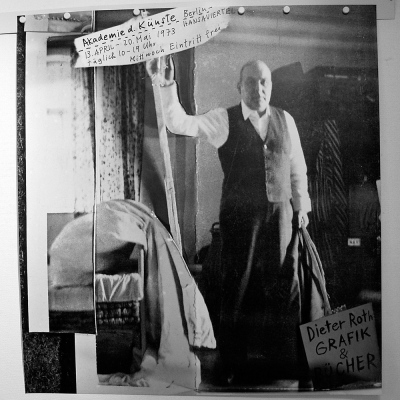 Akademie d. Künste Berlin
HANSAVIERTEL
13. APRIL - 20. Mai 1973
Täglich 10-19 Uhr
Mittwoch Eintritt frei
Dieter Roth
GRAFIK
&
BÜCHER